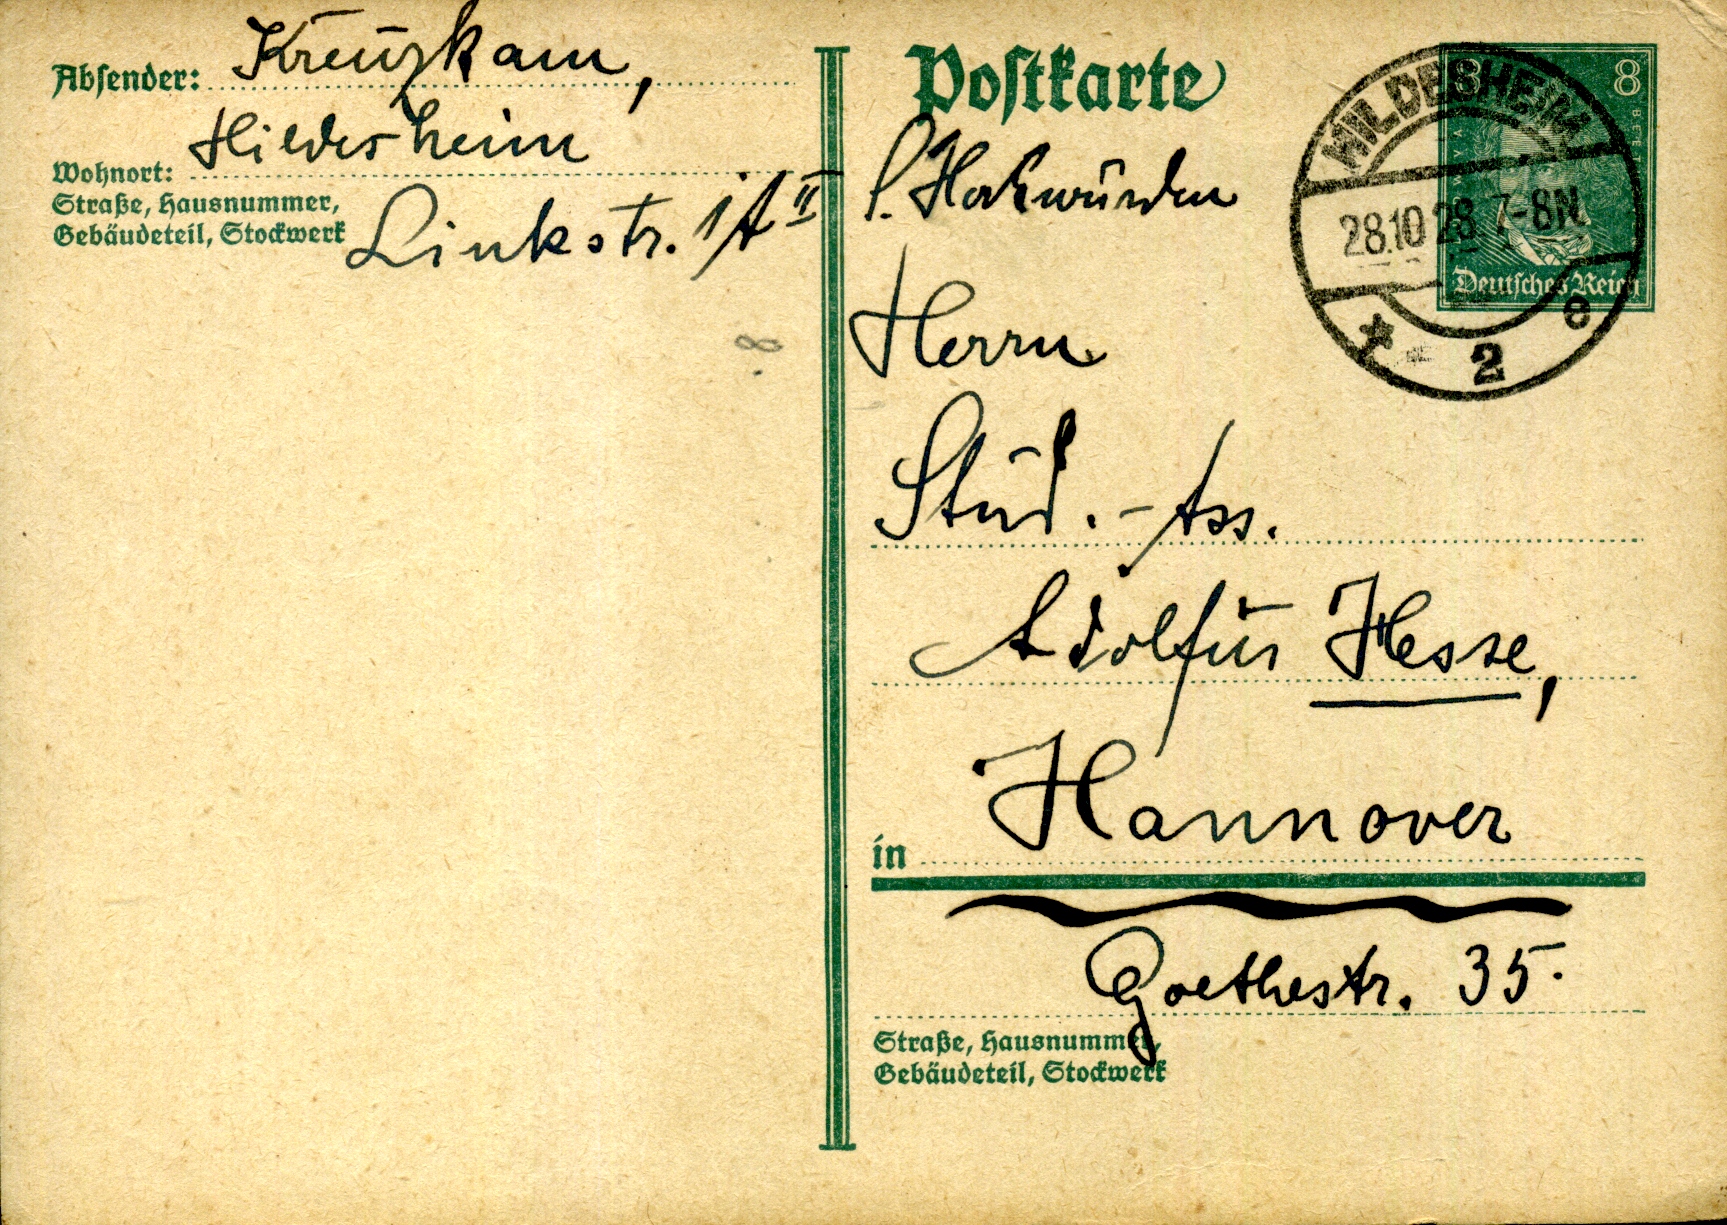 Absender: Kreuzkam,
Hildesheim
Wohnort:
Straße, Hausnummer,
Gebäudeteil, Stockwerk
Linkstr. 1A II
Postkarte
S. Hochwürden
Herrn
Stud.-Ass.
Adolfus Hesse,
in Hannover
Goethestr. 35.
Straße, Hausnummer,
Gebäudeteil, Stockwerk
8 8
Deutsches Reich
HILDESHEIM
28.10.28. 7-8N.
* 2 e